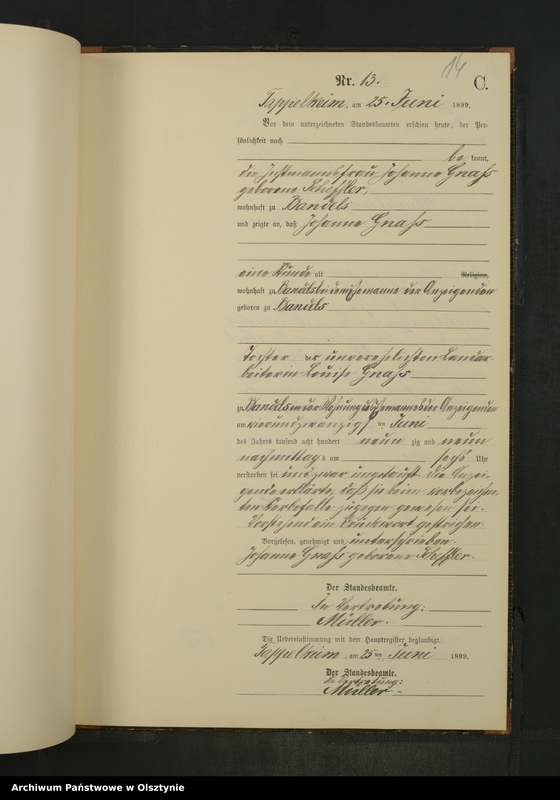 14
Nr. 13. C.
Toppelheim, am 25. Juni 1899.
Vor dem unterzeichneten Standesbeamten erschien heute, der Per-
sönlichkeit nach
be kannt,
die Instmannsfrau Johanna Gnass
geborene Scheffler,
wohnhaft zu Bandels
und zeigte an, daß Johanna Gnass
eine Stunde alt Religion,
wohnhaft zu Bandels bei dem Ehemanne der Anzeigenden
geboren zu Bandels
Tochter der unverehelichten Landar-
beiterin Louise Gnass
zu Bandels in der Wohnung des Ehemannes der Anzeigenden
am vierundzwanzig ten Juni
des Jahres tausend acht hundert neun zig und neun
nachmittags um sechs Uhr
verstorben sei und zwar ungetauft. Die Anzei-
gende erklärte, daß sie beim vorbezeichne-
ten Sterbefalle zugegen gewesen sei.
Vorstehend ein Druckwort gestrichen.
Vorgelesen, genehmigt und unterschrieben.
Johanna Gnass geborene Scheffler.
Der Standesbeamte.
In Vertretung:
Müller.
Die Uebereinstimmung mit dem Hauptregister beglaubigt.
Toppelheim, am 25 ten Juni 1899.
Der Standesbeamte.
In Vertretung:
Müller.
Archiwum Państwowe w Olsztynie